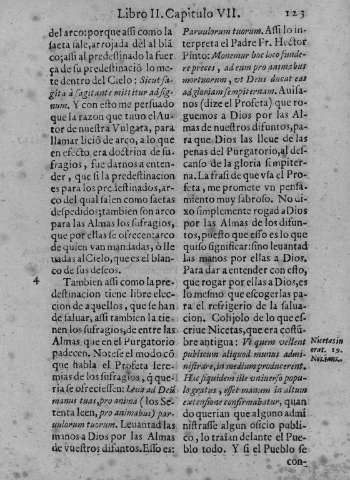 Libro II. Capitulo VII. 123
del arco: porque assi como la
saeta sale, arrojada del al blã
co; assi al predestinado la fuer
ça de su predestinació lo me-
te dentro del Cielo: Sicut sa-
gita à sagitante mittitur ad sig-
num. Y con esto me persuado
que la razon que tuuo el Au-
tor de nuestra Vulgata, para
llamar lició de arço, a lo que
en efecto era doctrina de su-
fragios, fue darnos a enten-
der, que si la predestinacion
es para los predestinados, ar-
co del qual salen como saetas
despedidos; tambien son arco
para las Almas los sufragios,
que por ellas se ofrecen: arco
de quien van mandadas, ò lle
uadas al Cielo, que es el blan-
co de sus deseos.
4 Tambien assi como la pre-
destinacion tiene libre elec-
cion de aquellos, que se han
de saluar, assi tambien la tie-
nen los sufragios, de entre las
Almas que en el Purgatorio
padecen. Notese el modo cõ
que habla el Profeta Iere-
mias de los sufragios, q̃ que-
ria se ofreciessen: Leua ad Deũ
manus tuas, pro anima (los Se-
tenta leen, pro animabus) par-
uulorum tuorum. Leuantad las
manos a Dios por las Almas
de vuestros difuntos. Esso es:
Paruulorum tuorum. Assi lo in-
terpreta el Padre Fr. Hector
Pinto: Monemur hoc loco funde-
re preces, ad eum pro animabus
mortuorum, vt Deus ducat eas
ad gloriam sempiternam. Auisa-
nos (dize el Profeta) que ro-
guemos a Dios por las Al-
mas de nuestros difuntos, pa-
ra que Dios las lleue de las
penas del Purgatorio, al des-
canso de la gloria sempiter-
na. La frasi de que vsa el Pro-
feta, me promete vn pensa-
miento muy sabroso. No di-
xo simplemente rogad a Dios
por las Almas de los difun-
tos, puesto que esso es lo que
quiso significar: sino leuantad
las manos por ellas a Dios.
Para dar a entender con esto,
que rogar por ellas a Dios, es
lo mesmo que escogerlas pa-
ra el refrigerio de la salua-
cion. Colijolo de lo que es-
criue Nicetas, que era costũ-
bre antigua: Vi quem vellent
publicum aliquod munus admi-
nistrare, in medium producerent.
Hic siquidem ille vniverso popu-
lo gratus, esset manum in altum
extensione confirmabatur, quan
do querian que alguno admi
nistrasse algun oficio publi-
co, lo traían delante el Pue-
blo todo. Y si el Pueblo se
con-
Nicetas in
orat. 19.
Nazianz.